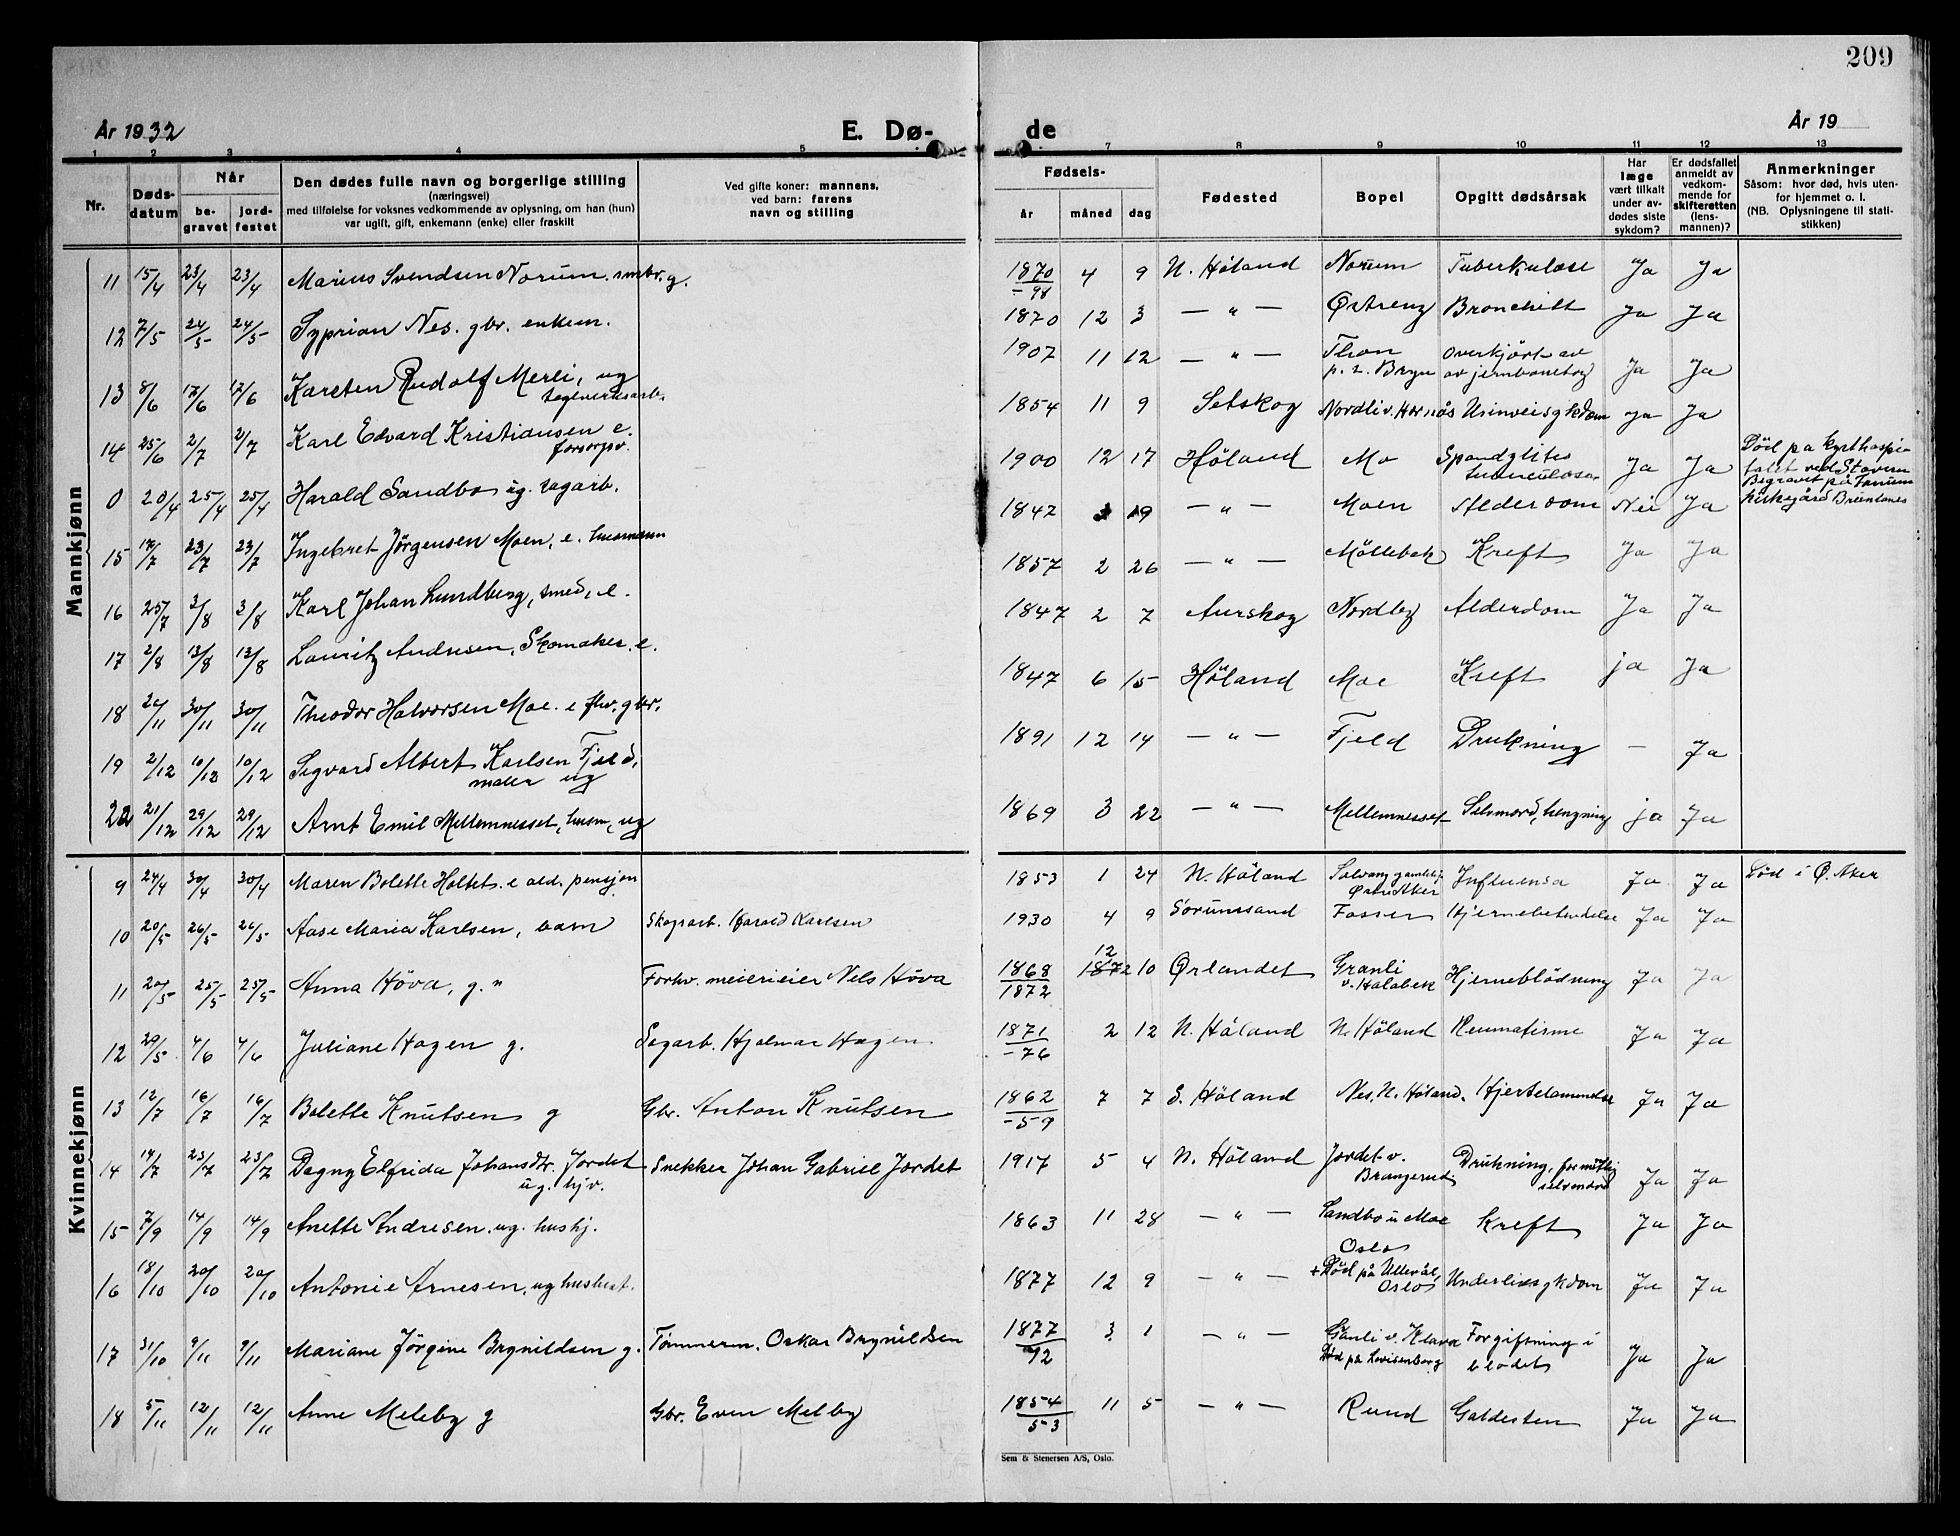 209
År 1932
E. Dø-
de
År 19
1 2 3 4 5 7 8 9 10 11 12 13
Nr.
Døds-
datum
Når
be-
gravet
jord-
festet
Den dødes fulle navn og borgerlige stilling
(næringsvei)
med tilføielse for voksnes vedkommende av oplysning, om han (hun)
var ugift, gift, enkemann (enke) eller fraskilt
Ved gifte koner: mannens,
ved barn: farens
navn og stilling
Fødsels-
år måned dag
Fødested
Bopel
Opgitt dødsårsak
Har
læge
vært tilkalt
under av-
dødes siste
sykdom?
Er dødsfallet
anmeldt av
vedkom-
mende for
skifteretten
(lens-
mannen)?
Anmerkninger
Såsom: hvor død, hvis uten-
for hjemmet o. l.
(NB. Oplysningene til stati-
stikken)
Mannkjønn
11 15/4 23/4 23/4 Marius Svendsen Norum. smbr. g. 1870/-98 4 9 N. Höland Norum Tuberkulose Ja Ja
12 7/5 24/5 24/5 Syprian Nes. gbr. enkem. 1870 12 3 — " — Østreng Bronchitt Ja Ja
13 8/6 12/6 12/6 Karsten Rudolf Merli, ug
teglverksarb. 1907 11 12 — " — Thon
p. t. Bryn overkjørt av
av jernbanetog Ja Ja
14 25/6 2/7 2/7 Karl Edvard Kristiansen e.
forsorgsv. 1854 11 9 Setskog Nordli v. Hornås Urinveisykdom Ja Ja
0 20/4 25/4 25/4 Harald Sandbo ug. sagarb. 1900 12 17 Höland Mo Spondylitis
tuberculosa Ja Ja Död på kysthospi-
talet ved Stavern
Begravet på Tanum
kirkegård Brunlanes
15 17/7 23/7 23/7 Ingebret Jörgensen Moen, e. husmann 1842 19 — " — Moen Alderdom Nei Ja
16 25/7 3/8 3/8 Karl Johan Lundberg, smed, e. 1857 2 26 — " — Möllebek Kreft Ja Ja
17 2/8 13/8 13/8 Lauritz Andresen, Skomaker. e. 1847 2 7 Aurskog Nordby Alderdom Ja Ja
18 24/11 30/11 30/11 Theodor Halvorsen Moe. e fhv. gbr. 1847 6 15 Höland Moe Kreft ja Ja
19 2/12 10/12 10/12 Sigvard Albert Karlsen Fjeld,
maler ug 1891 12 14 — " — Fjeld Drukning — Ja
22 21/12 29/12 29/12 Arnt Emil Mellemnesset, husm, ug 1869 3 22 — " — Mellemnesset Selvmord, hengning ja Ja
Kvinnekjønn
9 24/4 30/4 30/4 Maren Bolette Holtet. e ald. pensjon 1853 1 24 N. Höland Solvang gamlehj.
Østre Aker Influensa Ja Ja Död i Ø. Aker
10 20/5 26/5 26/5 Aase Maria Karlsen, barn Skogsarb. Harald Karlsen 1930 4 9 Sörumsand Fosser Hjernebetendelse Ja Ja
11 20/5 25/5 25/5 Anna Höva, g. " Forhv. meierieier Nels Höva 1868/1872 12 1872 10 Ørlandet Granli
v. Halabek Hjerneblödning Ja Ja
12 29/5 4/6 4/6 Juliane Hagen g. Sagarb. Hjalmar Hagen 1871/-76 2 12 N. Höland N. Höland Reumatisme Ja Ja
13 12/7 16/7 16/7 Bolette Knutsen g Gbr. Anton Knutsen 1862/-59 7 7 S. Höland Nes, N. Höland. Hjertelammelse Ja Ja
14 14/7 23/7 23/7 Dagny Elfrida Johansdtr. Jordet
ug. hjv. Snekker Johan Gabriel Jordet 1917 5 4 N. Höland Jordet v.
Brangerud Drukning, formentlig
selvmord Ja Ja
15 7/9 14/9 14/9 Anette Andresen. ug. hushj. 1863 11 28 — " — Sandbo u Moe Kreft Ja Ja
16 18/10 20/10 20/10 Antonie Arnesen, ug husbest. 1877 12 9 — " — Oslo
+ Död på Ullevål,
Oslo Underlivssykdom Ja Ja
17 31/10 9/11 9/11 Mariane Jörgine Brynildsen g. Tömmerm. Oskar Brynildsen 1877/92 3 1 — " — Granli v. Kleva
Död på Lovisenberg Forgiftning i
blodet Ja Ja
18 5/11 12/11 12/11 Anne Meleby g Gbr. Even Melby 1854/53 11 5 — " — Rund Galdesten Ja Ja
Sem & Stenersen A/S, Oslo.